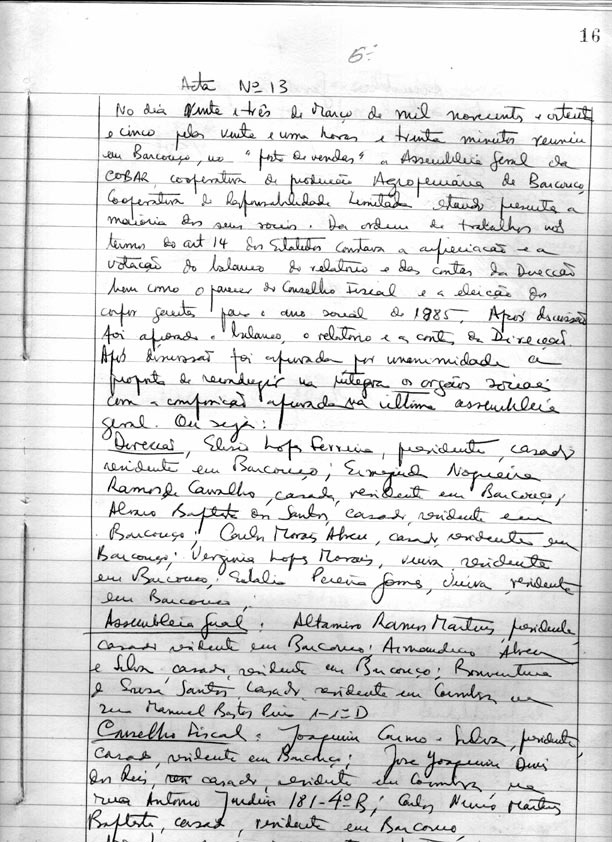 16
6ª
Acta Nº 13
No dia vinte e três de Março de mil novecentos e oitenta
e cinco pelas vinte e uma horas e trinta minutos reuniu
em Barcouço, no "posto de vendas" a Assembleia Geral da
COBAR, cooperativa de produção Agropecuária de Barcouço,
Cooperativa de Responsabilidade Limitada estando presente a
maioria dos seus sócios. Da ordem de trabalhos nos
termos do art 14 dos Estatutos constava a apreciação e a
votação do balanço do relatório e das contas da Direcção
bem como o parecer do Conselho Fiscal e a eleição dos
corpos gerentes para o ano social de 1985. Após discussão
foi aprovado o balanço, o relatório e a contas da Direcção.
Após discussão foi aprovada por unanimidade a
proposta de reconduzir na íntegra os orgãos sociais
com a composição aprovada na última assembleia
geral. Ou seja:
Direcção, Elisio Lopes Ferreira, presidente, casado
residente em Barcouço; Nogueira
Ramos de Carvalho, casado, residente em Barcouço;
Alvaro Baptista dos Santos, casado, residente em
Barcouço; Carlos Morais Abreu, casado, residente em
Barcouço; Verginia Lopes Morais, viuva, residente
em Barcouço; Pereira Gomes, viuva, residente
em Barcouço;
Assembleia Geral: Altamiro Ramos Martins, presidente,
casado residente em Barcouço; Armandino Abreu
e Silva casado, residente em Barcouço; Boaventura
e Sousa Santos casado residente em Coimbra na
rua Manuel Bastos 1-1º D
Conselho Fiscal: Joaquim Carmo e Silva, presidente,
casado, residente em Barcouço; José Joaquim Dinis
dos Reis, casado, residente em Coimbra na
rua Antonio Jardim 181-4º B; Carlos Martins
Baptista, casado, residente em Barcouço,